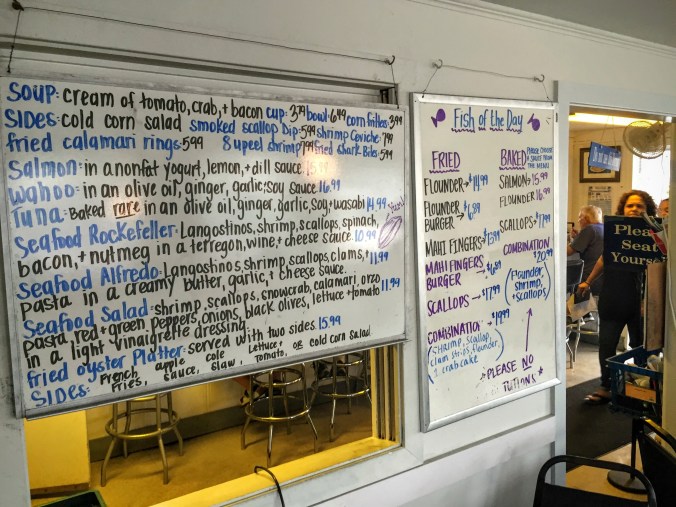 SOUP: cream of tomato, crab, + bacon cup 3.79 bowl 6.49 corn fritters 3.99
SIDES: cold corn salad smoked scallop Dip 5.99 shrimp Ceviche 7.99
fried calamari rings: 5.99 8 upeel shrimp 7.99 fried shark Bites 5.99
Salmon: in a nonfat yogurt, lemon, + dill sauce 15.99
Wahoo: in an olive oil, ginger, garlic, soy sauce 16.99
Tuna: Baked rare in an olive oil, ginger, garlic, soy + wasabi 14.99
Seafood Rockefeller: Langostinos, shrimp, scallops, spinach,
bacon, + nutmeg in a terregon, wine, + cheese sauce 10.99
Seafood Alfredo: Langostinos, shrimp, scallops, clams, +
pasta in a creamy butter, garlic, + cheese sauce. 11.99
Seafood Salad: shrimp, scallops, snowcrab, calamari, orzo
pasta, red + green peppers, onions, black olives, lettuce + tomato
in a light vinaigrette dressing 11.99
fried oyster Platter: served with two sides 15.99
SIDES: French fries, apple sauce, cole slaw, Lettuce + tomato, or cold corn salad
Fish of the Day
FRIED
FLOUNDER →
FLOUNDER BURGER →
MAHI FINGERS → 13.99
MAHI FINGERS BURGER →
SCALLOPS → 17.99
COMBINATION → 19.99
(Shrimp, Scallop,
clam strips, flounder,
1 crab cake)
BAKED PLEASE CHOOSE A SAUCE FROM THE MENU
SALMON → 15.99
FLOUNDER 16.99
SCALLOPS → 17.99
COMBINATION 20.99
(flounder,
shrimp,
+ scallops)
→ PLEASE NO
Please
Seat
Yourself